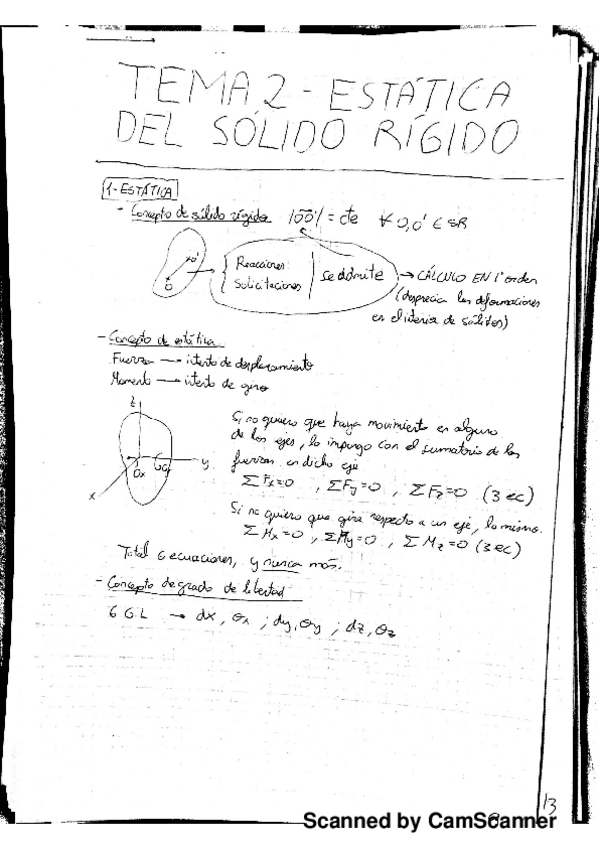 TEMA 2 - ESTÁTICA
DEL SÓLIDO RÍGIDO
1- ESTÁTICA
- Concepto de sólido rígido |OO'| = cte ∀ O,O' ∈ SR
O'
O
Reacciones
Solicitaciones
Se admite → CÁLCULO EN 1er orden
(desprecia las deformaciones
en el interior de sólidos)
- Concepto de estática
Fuerza → intento de desplazamiento
Momento → intento de giro
z
y
x
θx
Si no quiero que haya movimiento en alguno
de los ejes, lo impongo con el sumatorio de las
fuerzas en dicho eje
ΣFx=0 , ΣFy=0 , ΣFz=0 (3 ec)
Si no quiero que gire respecto a un eje, lo mismo.
ΣMx=0 , ΣMy=0 , ΣMz=0 (3 ec)
Total 6 ecuaciones, y nunca más.
- Concepto de grado de libertad
6 G.L → dx, θx ; dy, θy ; dz, θz
13
Scanned by CamScanner